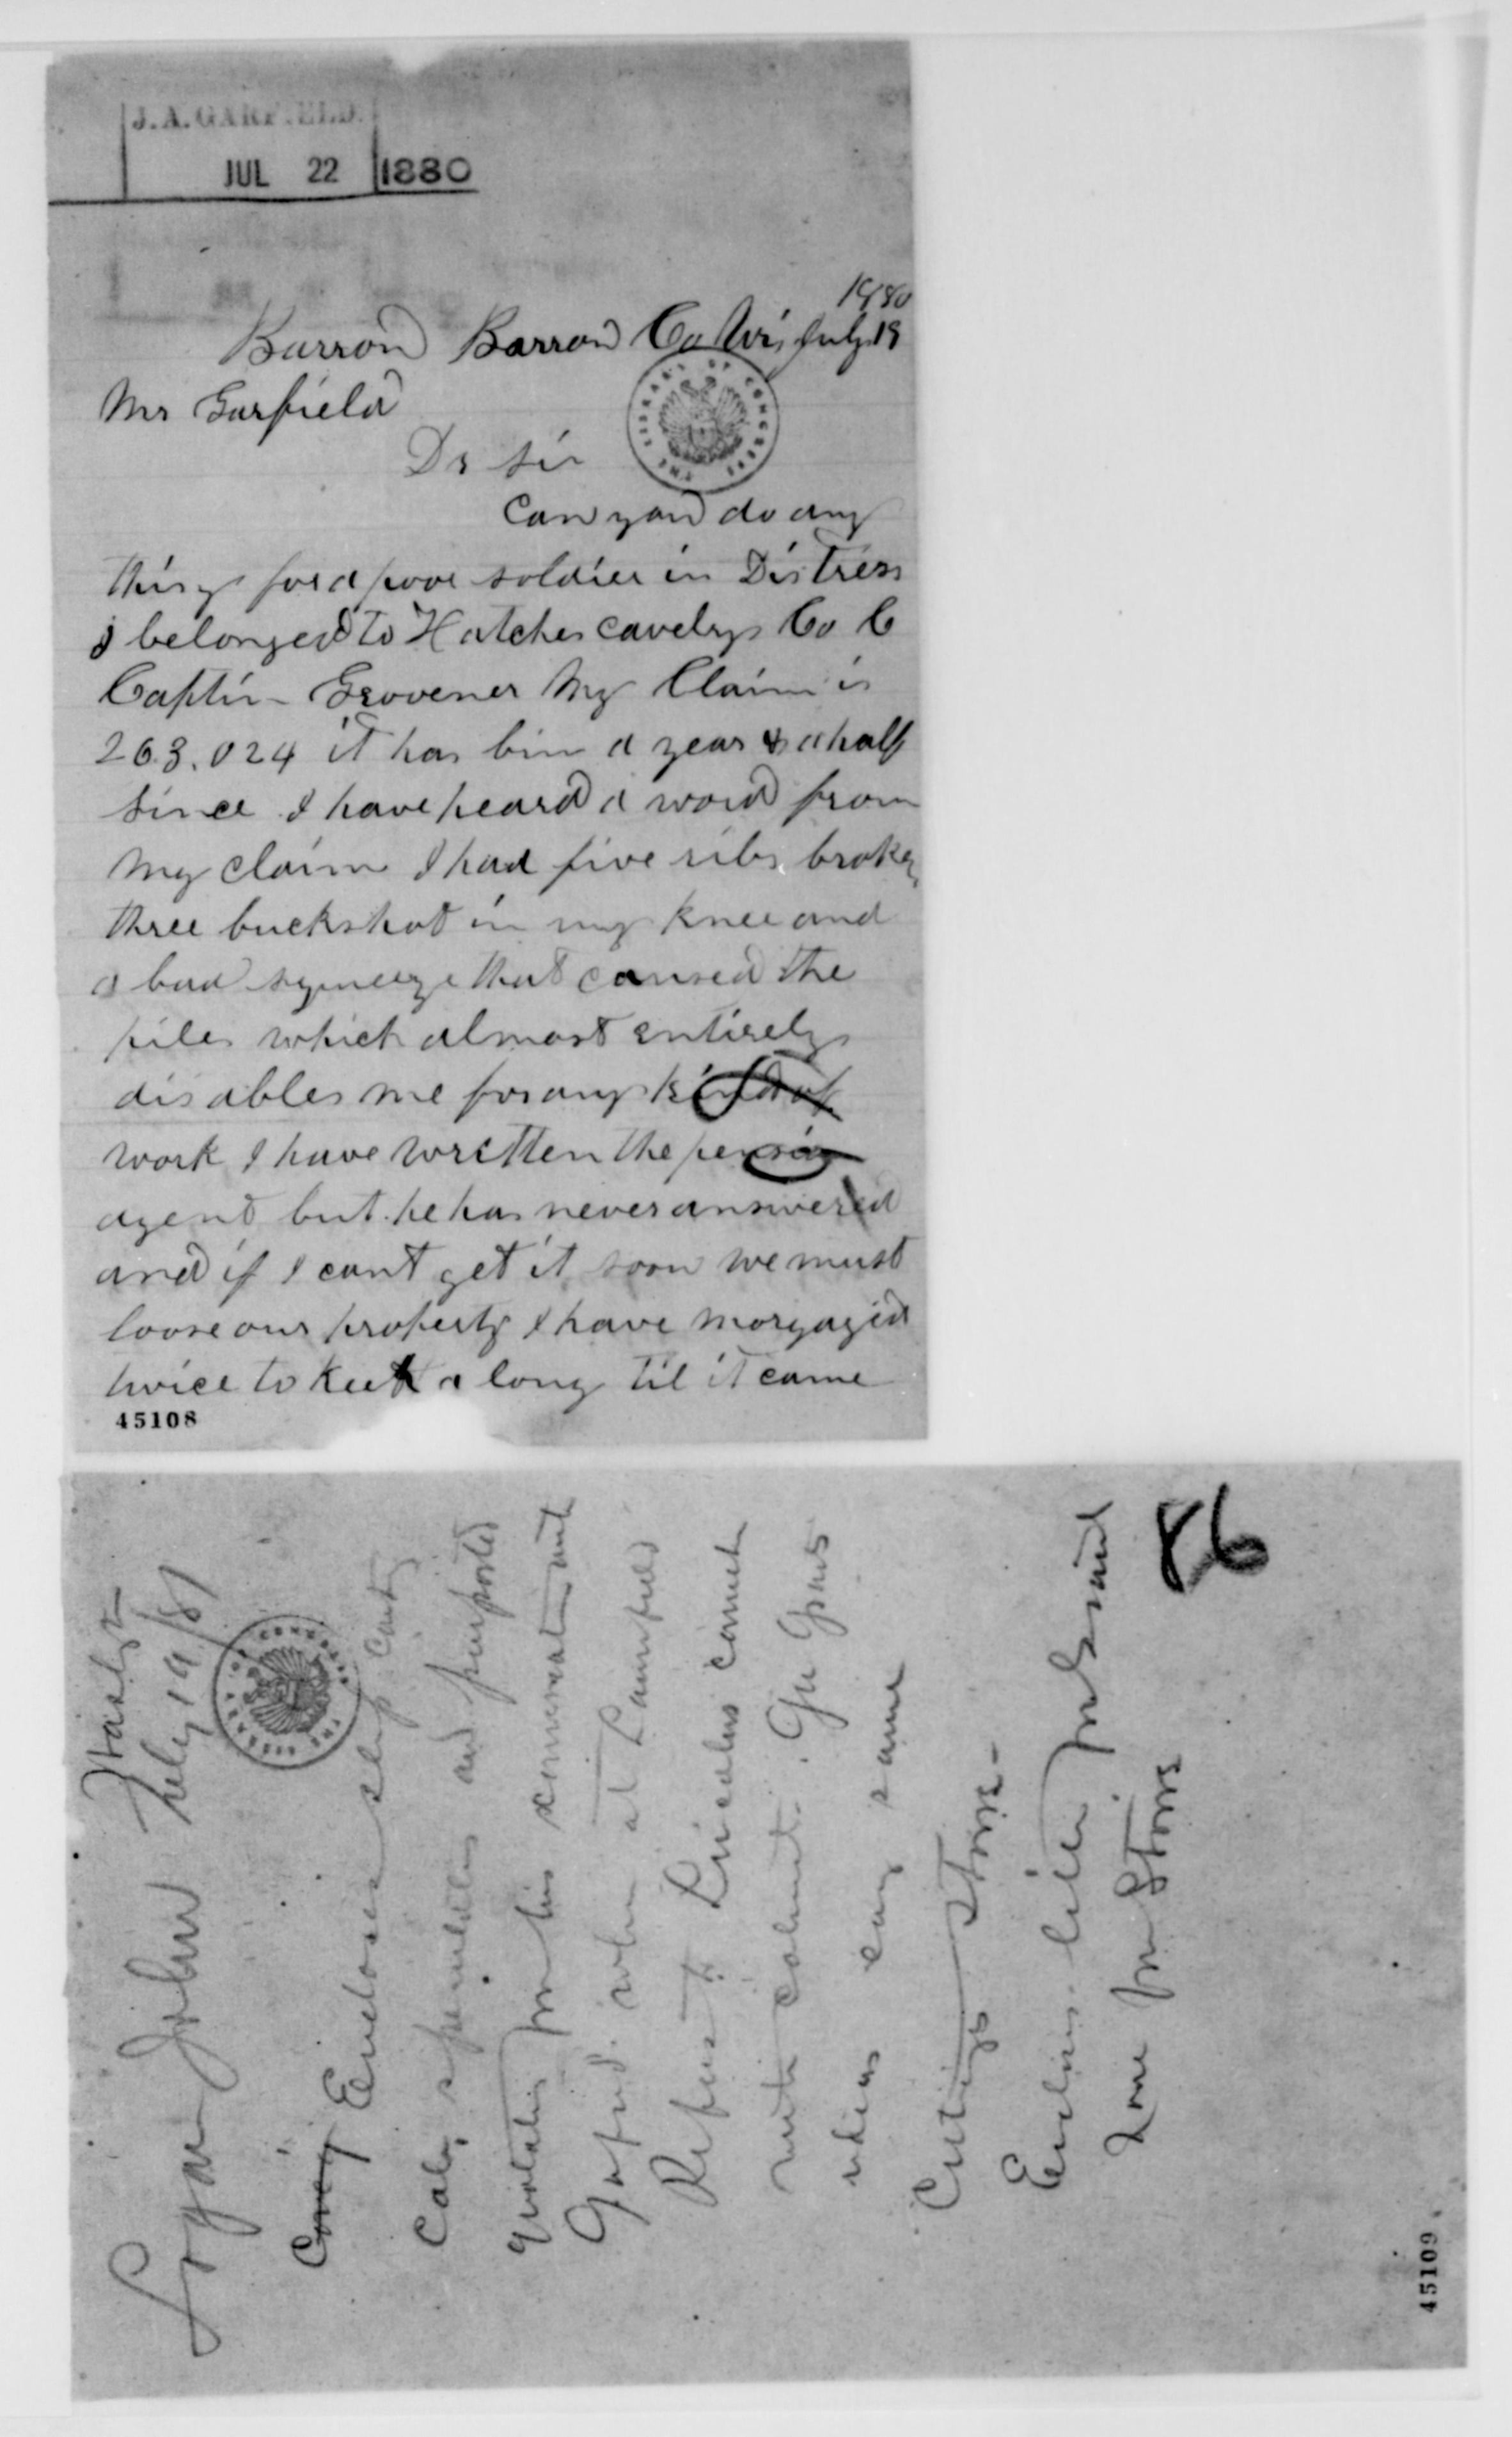 J.A. GARFIELD.
JUL 22 1880
1880
Barron Barron Co Wis July 19
Mr Garfield
Dr sir
THE LIBRARY OF CONGRESS
can you do any
thing for a poor soldier in Distress
I belonged to Hatches cavelry Co C
Captin Grovener My Claim is
263.024 it has bin a year & a half
since I have heard a word from
my claim I had five ribs broken
three buckshot in my knee and
a bad sqmeeze that caused the
piles which almost entirely
disables me for any kind of
work I have written the pension
agent but he has never answered
and if I cant get it soon we must
loose our property I have morgaged
twice to keep a long til it came
45108
Logan John
July 19/8
THE LIBRARY OF CONGRESS
Encloses slip
and purported
for his conversation with
when at
Refuses to
with cabinet. Gen Grants
views same
Cuttings
Encloses letter
from Storrs
86
45109